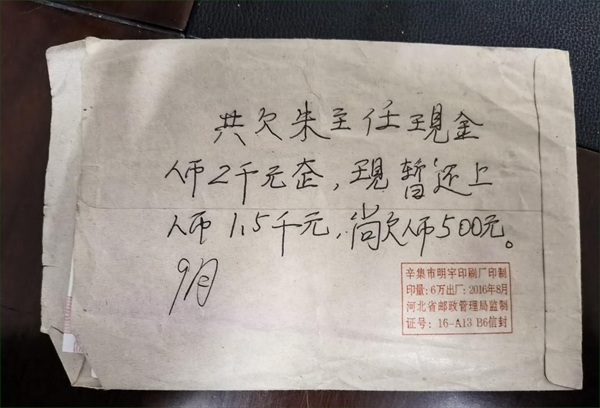 共欠朱主任现金
人币2千元整，现暂还上
人币1.5千元，尚欠人币500元。
9月
辛集市明宇印刷厂印制
印量：6万出厂：2016年8月
河北省邮政管理局监制
证号：16-A13 B6信封